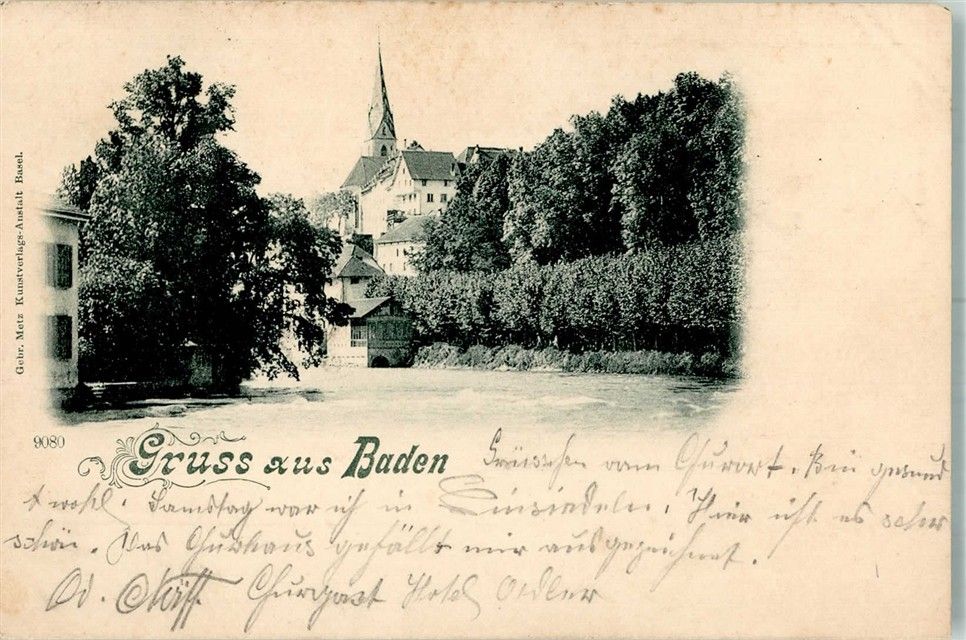 Gebr. Metz Kunstverlags-Anstalt Basel.
9080
Gruss aus Baden
Grüsschen vom Churort. Bin gesund
& wohl. Samstag war ich in Einsiedeln. Hier ist es sehr
schön. Das Churhaus gefällt mir ausgezeichnet.
Ad. Näff. Churgast Hotel Adler